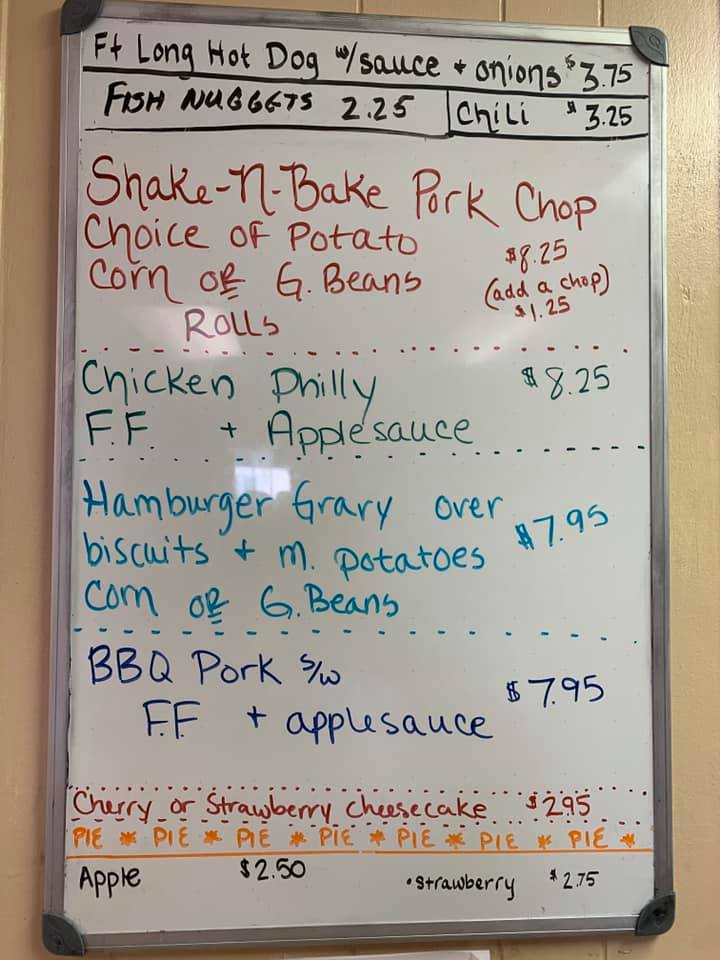 Ft Long Hot Dog w/sauce + onions $3.75
FISH NUGGETS 2.25
Chili $3.25
Shake-N-Bake Pork Chop
Choice of Potato
$8.25
Corn or G. Beans
(add a chop)
$1.25
Rolls
Chicken Philly $8.25
F.F. + Applesauce
Hamburger Gravy over
biscuits + m. potatoes $7.95
Corn or G. Beans
BBQ Pork s/w
$7.95
F.F. + applesauce
Cherry or Strawberry Cheesecake $2.95
PIE * PIE * PIE * PIE * PIE * PIE * PIE *
Apple $2.50 •strawberry $2.75